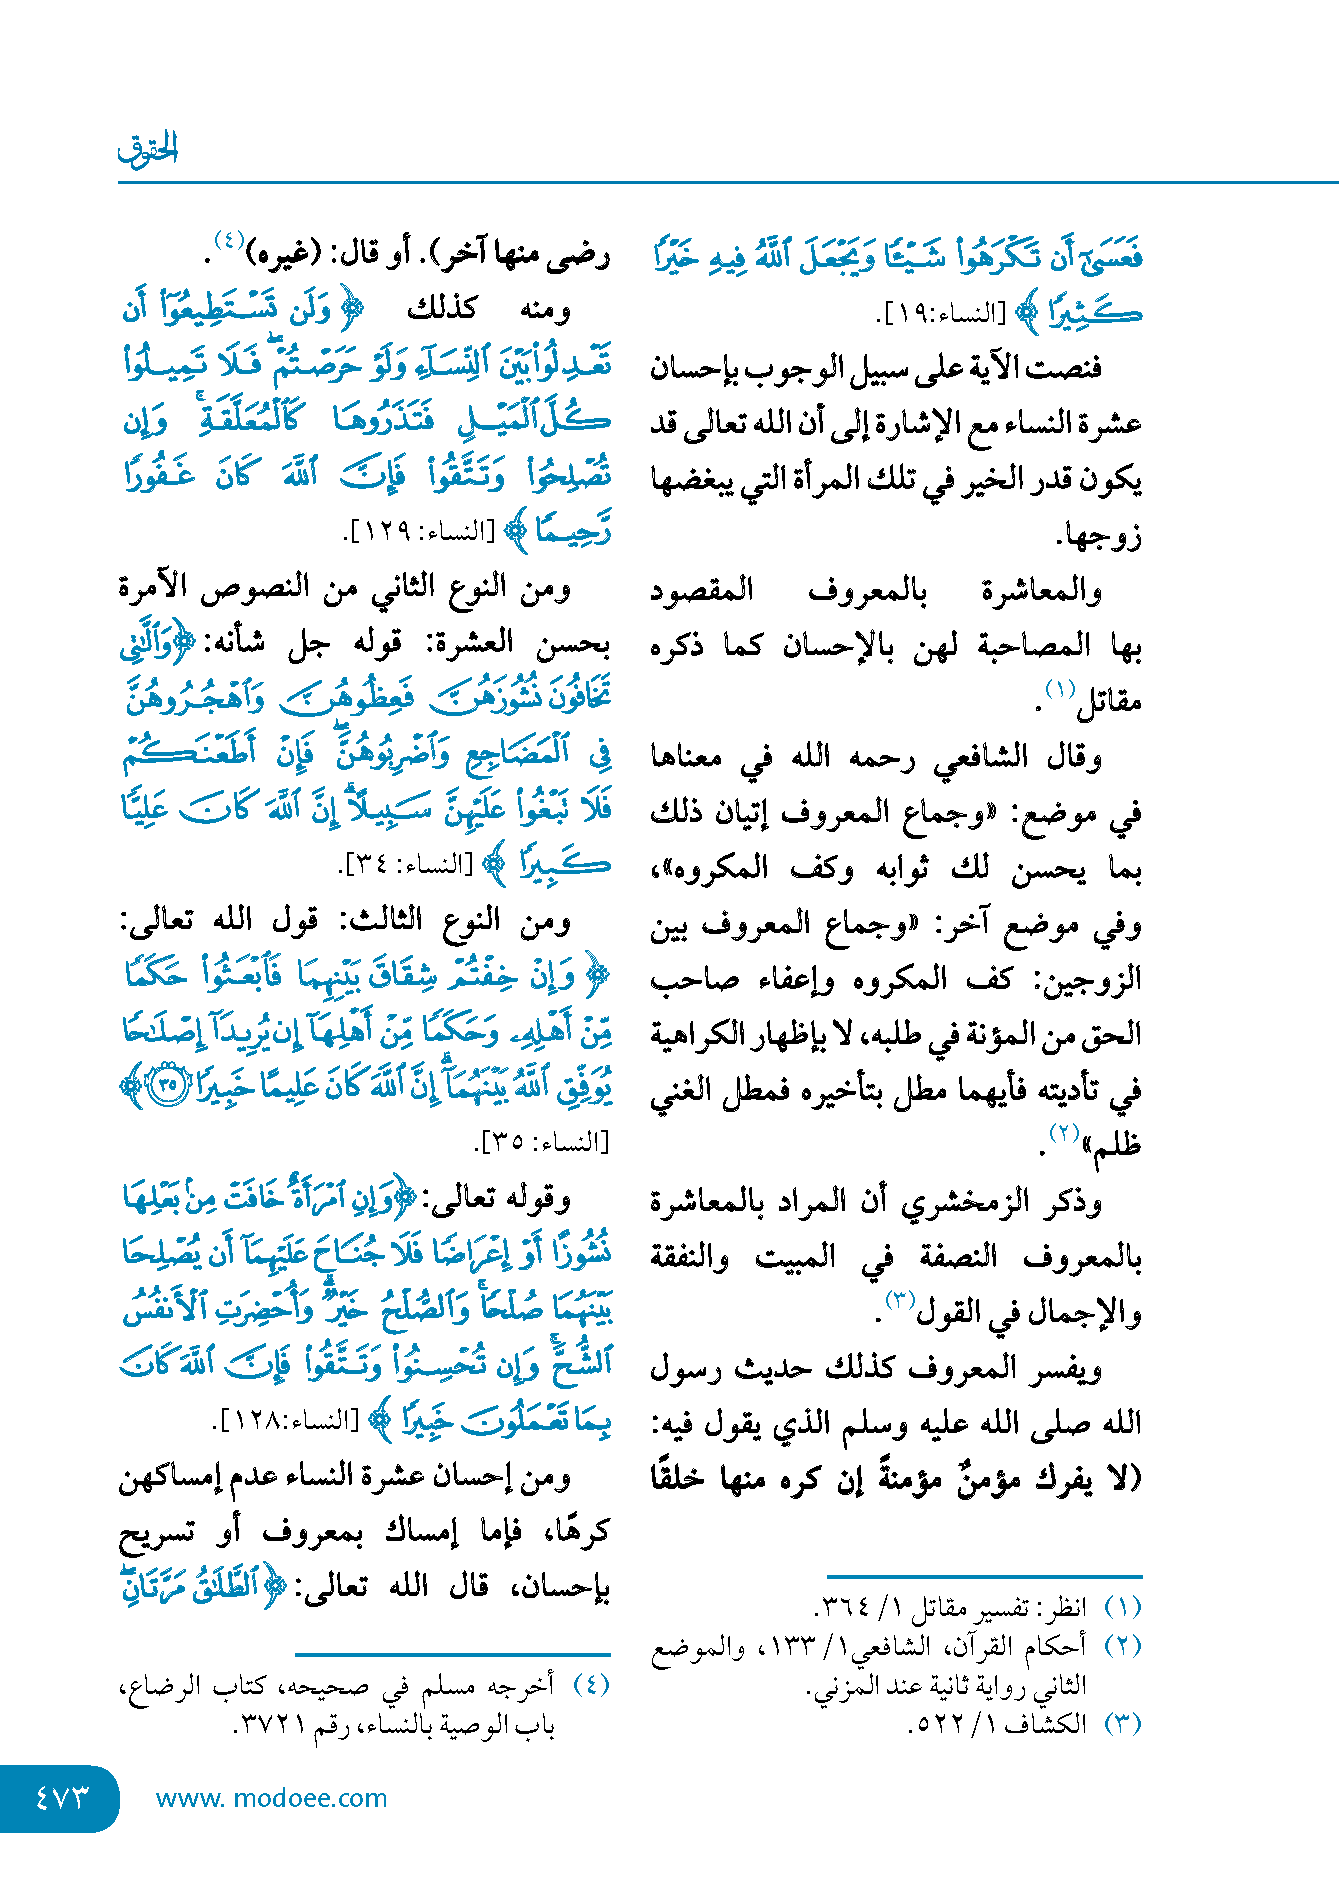 الحقوق
فَعَسَىٰٓ أَن تَكْرَهُوا۟ شَيْـًٔا وَيَجْعَلَ ٱللَّهُ فِيهِ خَيْرًا
كَثِيرًا ﴾ [النساء:١٩].
فنصت الآية على سبيل الوجوب بإحسان
عشرة النساء مع الإشارة إلى أن الله تعالى قد
يكون قدر الخير في تلك المرأة التي يبغضها
زوجها.
والمعاشرة بالمعروف المقصود
بها المصاحبة لهن بالإحسان كما ذكره
مقاتل(١).
وقال الشافعي رحمه الله في معناها
في موضع: «وجماع المعروف إتيان ذلك
بما يحسن لك ثوابه وكف المكروه»،
وفي موضع آخر: «وجماع المعروف بين
الزوجين: كف المكروه وإعفاء صاحب
الحق من المؤنة في طلبه، لا بإظهار الكراهية
في تأديته فأيهما مطل بتأخيره فمطل الغني
ظلم»(٢).
وذكر الزمخشري أن المراد بالمعاشرة
بالمعروف النصفة في المبيت والنفقة
والإجمال في القول(٣).
ويفسر المعروف كذلك حديث رسول
الله صلى الله عليه وسلم الذي يقول فيه:
(لا يفرك مؤمنٌ مؤمنةً إن كره منها خلقًا
(١) انظر: تفسير مقاتل ١/ ٣٦٤.
(٢) أحكام القرآن، الشافعي١/ ١٣٣، والموضع
الثاني رواية ثانية عند المزني.
(٣) الكشاف ١/ ٥٢٢.
رضى منها آخر). أو قال: (غيره)(٤).
ومنه كذلك ﴿ وَلَن تَسْتَطِيعُوٓا۟ أَن
تَعْدِلُوا۟ بَيْنَ ٱلنِّسَآءِ وَلَوْ حَرَصْتُمْ ۖ فَلَا تَمِيلُوا۟
كُلَّ ٱلْمَيْلِ فَتَذَرُوهَا كَٱلْمُعَلَّقَةِ ۚ وَإِن
تُصْلِحُوا۟ وَتَتَّقُوا۟ فَإِنَّ ٱللَّهَ كَانَ غَفُورًا
رَّحِيمًا ﴾ [النساء: ١٢٩].
ومن النوع الثاني من النصوص الآمرة
بحسن العشرة: قوله جل شأنه: ﴿وَٱلَّٰتِى
تَخَافُونَ نُشُوزَهُنَّ فَعِظُوهُنَّ وَٱهْجُرُوهُنَّ
فِى ٱلْمَضَاجِعِ وَٱضْرِبُوهُنَّ ۖ فَإِنْ أَطَعْنَكُمْ
فَلَا تَبْغُوا۟ عَلَيْهِنَّ سَبِيلًا ۗ إِنَّ ٱللَّهَ كَانَ عَلِيًّا
كَبِيرًا ﴾ [النساء: ٣٤].
ومن النوع الثالث: قول الله تعالى:
﴿ وَإِنْ خِفْتُمْ شِقَاقَ بَيْنِهِمَا فَٱبْعَثُوا۟ حَكَمًا
مِّنْ أَهْلِهِۦ وَحَكَمًا مِّنْ أَهْلِهَآ إِن يُرِيدَآ إِصْلَٰحًا
يُوَفِّقِ ٱللَّهُ بَيْنَهُمَآ ۗ إِنَّ ٱللَّهَ كَانَ عَلِيمًا خَبِيرًا ٣٥ ﴾
[النساء: ٣٥].
وقوله تعالى: ﴿وَإِنِ ٱمْرَأَةٌ خَافَتْ مِنۢ بَعْلِهَا
نُشُوزًا أَوْ إِعْرَاضًا فَلَا جُنَاحَ عَلَيْهِمَآ أَن يُصْلِحَا
بَيْنَهُمَا صُلْحًا ۚ وَٱلصُّلْحُ خَيْرٌ ۗ وَأُحْضِرَتِ ٱلْأَنفُسُ
ٱلشُّحَّ ۚ وَإِن تُحْسِنُوا۟ وَتَتَّقُوا۟ فَإِنَّ ٱللَّهَ كَانَ
بِمَا تَعْمَلُونَ خَبِيرًا ﴾ [النساء:١٢٨].
ومن إحسان عشرة النساء عدم إمساكهن
كرهًا، فإما إمساك بمعروف أو تسريح
بإحسان، قال الله تعالى: ﴿ٱلطَّلَٰقُ مَرَّتَانِ ۖ
(٤) أخرجه مسلم في صحيحه، كتاب الرضاع،
باب الوصية بالنساء، رقم ٣٧٢١.
٤٧٣
www. modoee.com